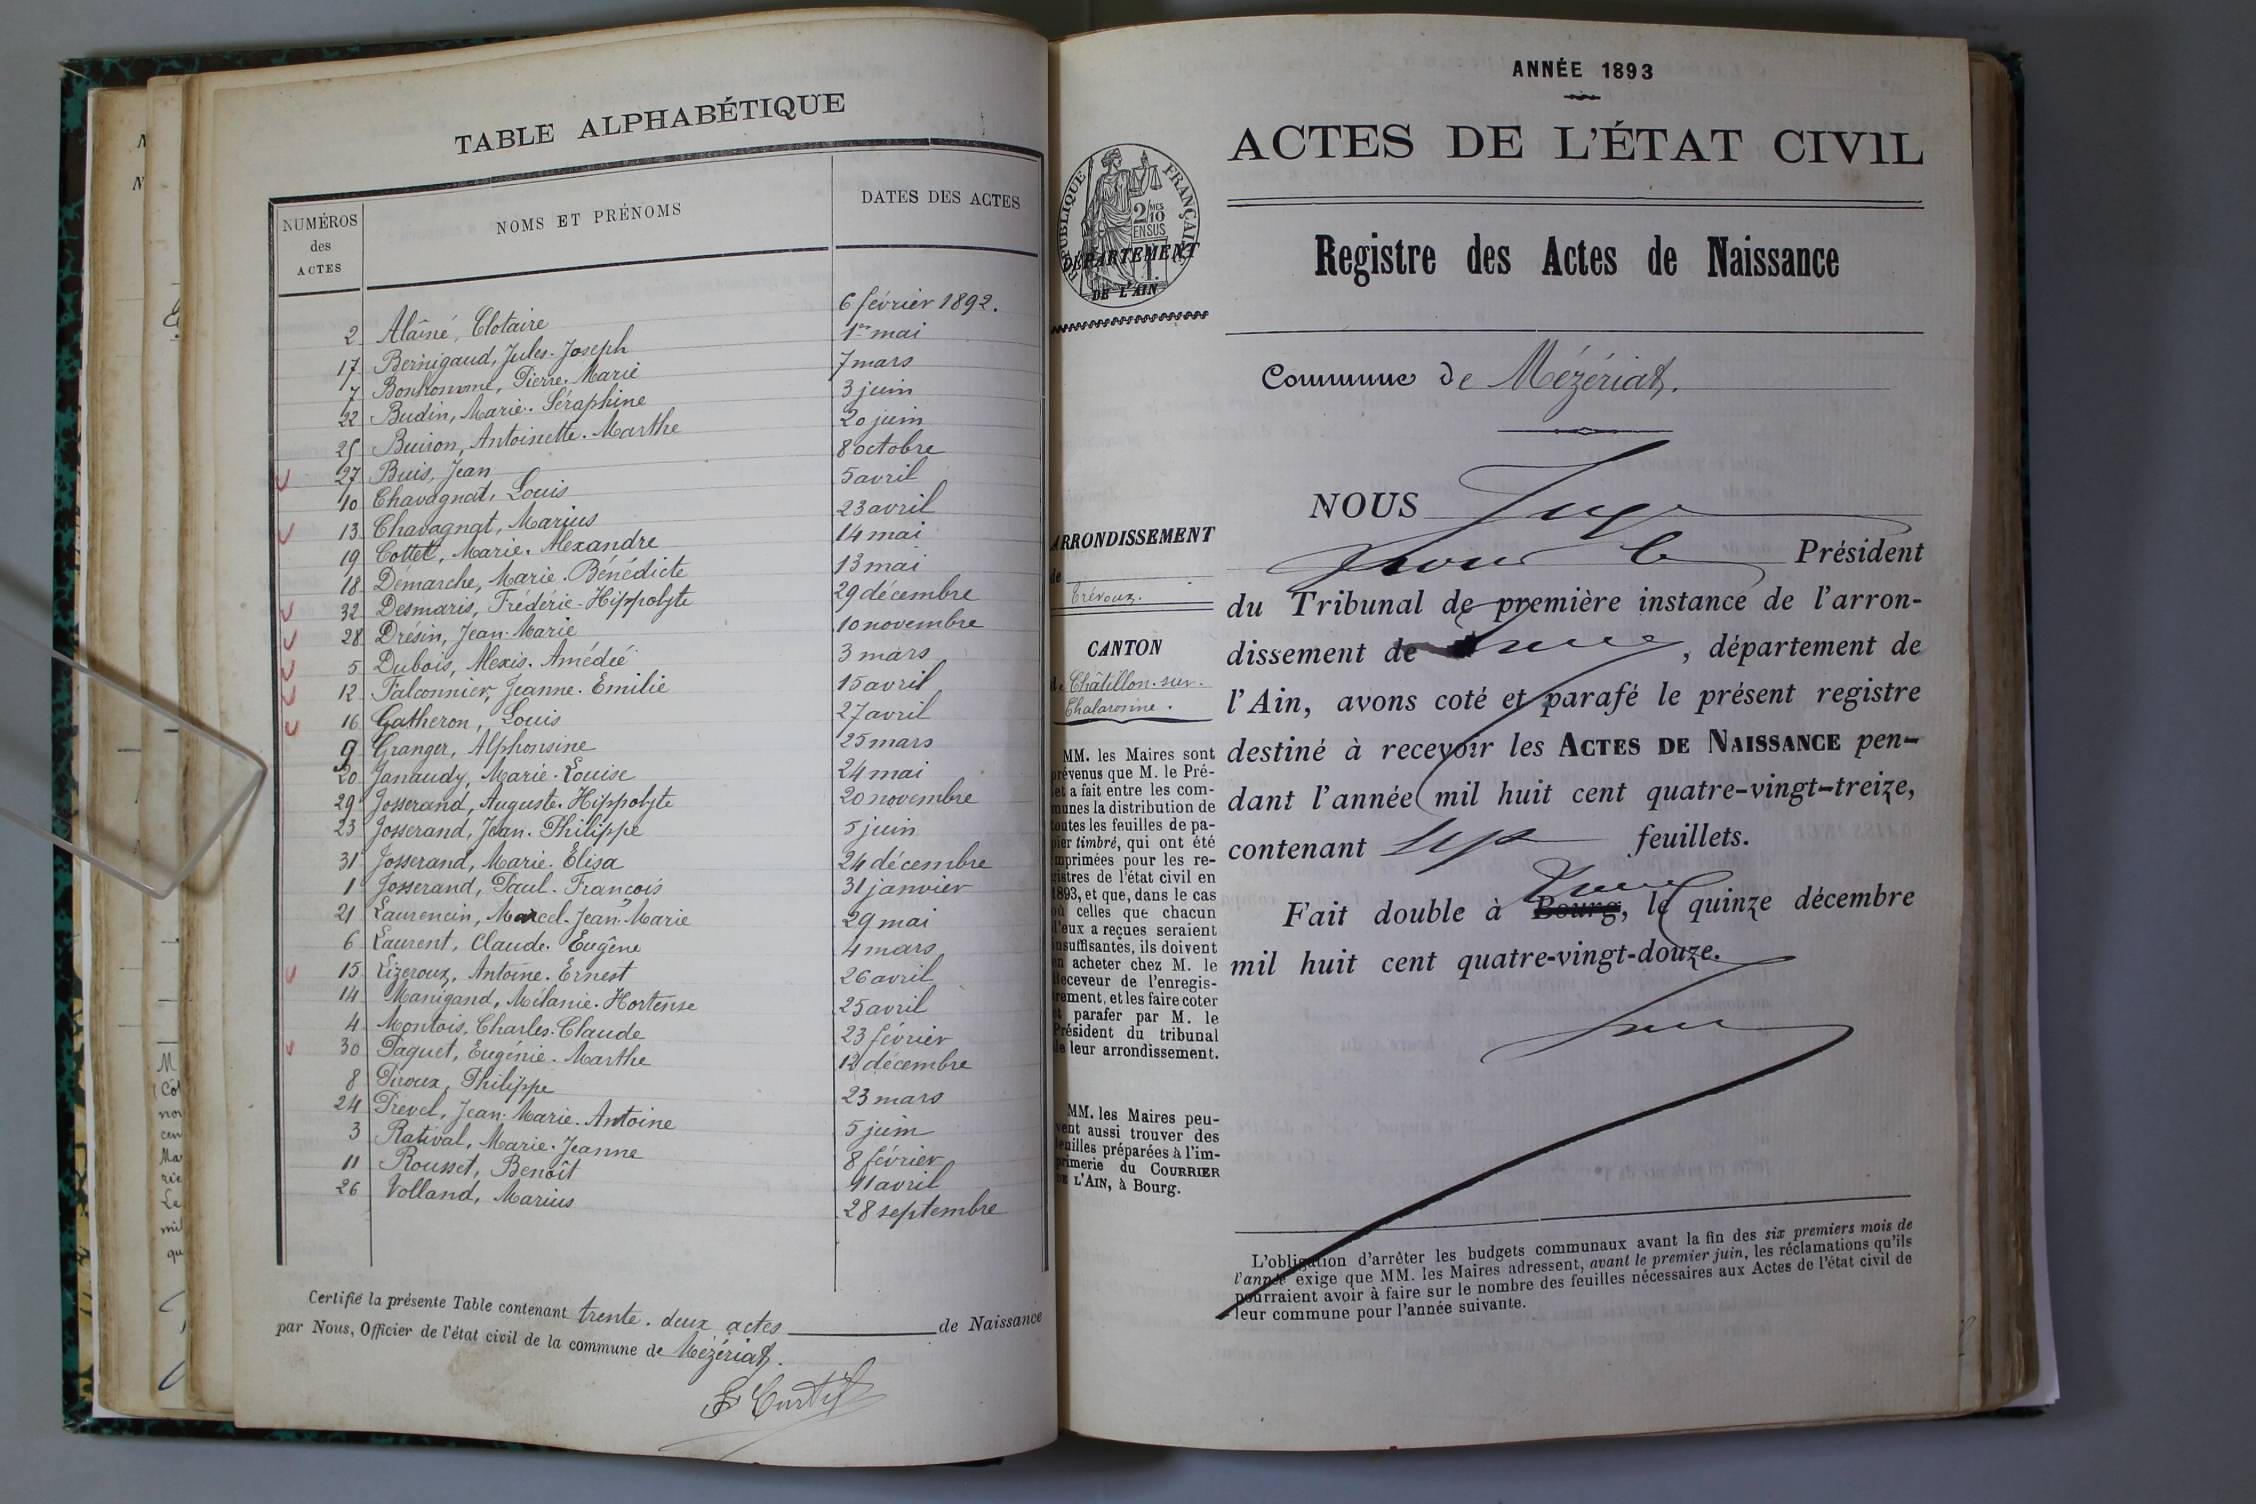 TABLE ALPHABÉTIQUE
NUMÉROS des ACTES NOMS ET PRÉNOMS DATES DES ACTES
2 Alaîné, Clotaire 6 février 1892.
17 Bernigaud, Jules-Joseph 1er mai
7 Bonhomme, Pierre-Marie 7 mars
22 Budin, Marie-Séraphine 3 juin
25 Buiron, Antoinette-Marthe 20 juin
27 Buis, Jean 8 octobre
10 Chavagnat, Louis 5 avril
13 Chavagnat, Marius 23 avril
19 Cottet, Marie-Alexandre 14 mai
18 Démarche, Marie-Bénédicte 13 mai
32 Desmaris, Frédéric-Hippolyte 29 décembre
28 Drésin, Jean-Marie 10 novembre
5 Dubois, Alexis-Amédée 3 mars
12 Falconnier, Jeanne-Emilie 15 avril
16 Gatheron, Louis 27 avril
9 Granger, Alphonsine 25 mars
20 Janaudy, Marie-Louise 24 mai
29 Josserand, Auguste-Hippolyte 20 novembre
23 Josserand, Jean-Philippe 5 juin
31 Josserand, Marie-Elisa 24 décembre
1 Josserand, Paul-François 31 janvier
21 Laurencin, Marcel-Jean-Marie 29 mai
6 Laurent, Claude-Eugène 4 mars
15 Lizeroux, Antoine-Ernest 26 avril
14 Manigand, Mélanie-Hortense 25 avril
4 Montois, Charles-Claude 23 février
30 Paquet, Eugénie-Marthe 12 décembre
8 Piroux, Philippe 23 mars
24 Prevel, Jean-Marie-Antoine 5 juin
3 Rativał, Marie-Jeanne 8 février
11 Rousset, Benoît 11 avril
26 Volland, Marius 28 septembre
Certifié la présente Table contenant trente-deux actes de Naissance
par Nous, Officier de l'état civil de la commune de Mézériat.
ANNÉE 1893
ACTES DE L'ÉTAT CIVIL
RÉPUBLIQUE FRANÇAISE
2/10 MES
EN SUS
DÉPARTEMENT
DE L'AIN
Registre des Actes de Naissance
Commune de Mézériat.
ARRONDISSEMENT
de
Trévoux.
CANTON
de Châtillon-sur-
Chalaronne.
MM. les Maires sont
prévenus que M. le Pré-
fet a fait entre les com-
munes la distribution de
toutes les feuilles de pa-
pier timbré, qui ont été
imprimées pour les re-
gistres de l'état civil en
1893, et que, dans le cas
où celles que chacun
d'eux a reçues seraient
insuffisantes, ils doivent
en acheter chez M. le
Receveur de l'enregis-
trement, et les faire coter
et parafer par M. le
Président du tribunal
de leur arrondissement.
MM. les Maires peu-
vent aussi trouver des
feuilles préparées à l'im-
primerie du COURRIER
DE L'AIN, à Bourg.
NOUS Juge
pour le Président
du Tribunal de première instance de l'arron-
dissement de , département de
l'Ain, avons coté et parafé le présent registre
destiné à recevoir les ACTES DE NAISSANCE pen-
dant l'année mil huit cent quatre-vingt-treize,
contenant sept feuillets.
Fait double à Bourg, le quinze décembre
mil huit cent quatre-vingt-douze.
L'obligation d'arrêter les budgets communaux avant la fin des six premiers mois de
l'année exige que MM. les Maires adressent, avant le premier juin, les réclamations qu'ils
pourraient avoir à faire sur le nombre des feuilles nécessaires aux Actes de l'état civil de
leur commune pour l'année suivante.